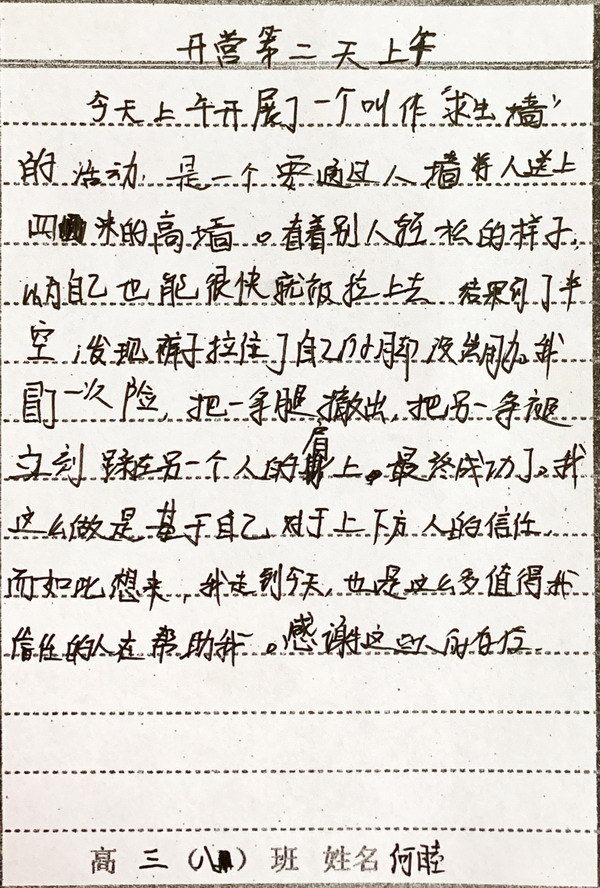 开营第二天上午
今天上午开展了一个叫作“求生墙”
的活动，是一个要通过人墙将人送上
四米的高墙。看着别人轻松的样子，
以为自己也能很快就被拉上去 结果到了半
空，发现裤子拉住了自己的脚 没法用力。我
冒了一次险，把一条腿撤出，把另一条腿
立刻踩在另一个人的肩上。最终成功了。我
这么做是基于自己对于上下方人的信任，
而如此想来，我走到今天，也是这么多值得我
信任的人在帮助我。感谢这些人的存在。
高三（八）班 姓名 何睦